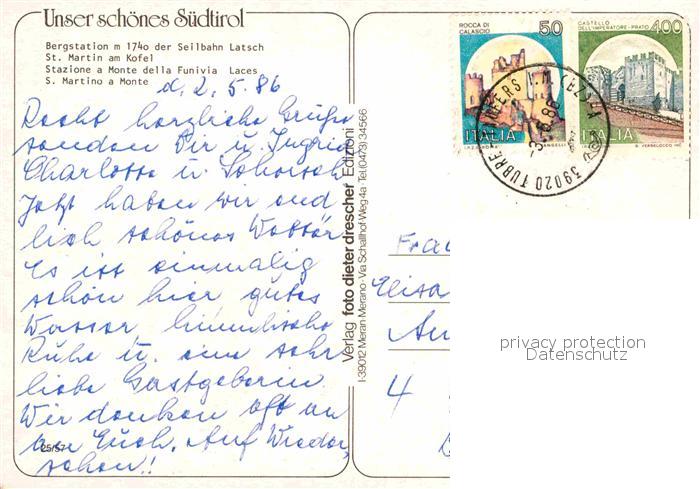 Unser schönes Südtirol
Bergstation m 1740 der Seilbahn Latsch
St. Martin am Kofel
Stazione a Monte della Funivia Laces
S. Martino a Monte
d. 2. 5. 86
Recht herzliche Grüße
senden Dir u. Ingrid
Charlotte u. Schorsch
Jetzt haben wir end
lich schönes Wetter
Es ist einmalig
schön hier gutes
Wasser himmlische
Ruhe u. eine sehr
liebe Gastgeberin
Wir denken oft an
Euch. Auf Wieder
sehen!
25/57
Verlag foto dieter drescher Edizioni
I-39012 Meran Merano-Via Schallhof Weg 4a · Tel. (0473) 34566
ROCCA DI
CALASCIO
50
ITALIA
CASTELLO
DELL'IMPERATORE - PRATO
400
ITALIA
39020 TUBRE
Frau
Elisa
4
privacy protection
Datenschutz